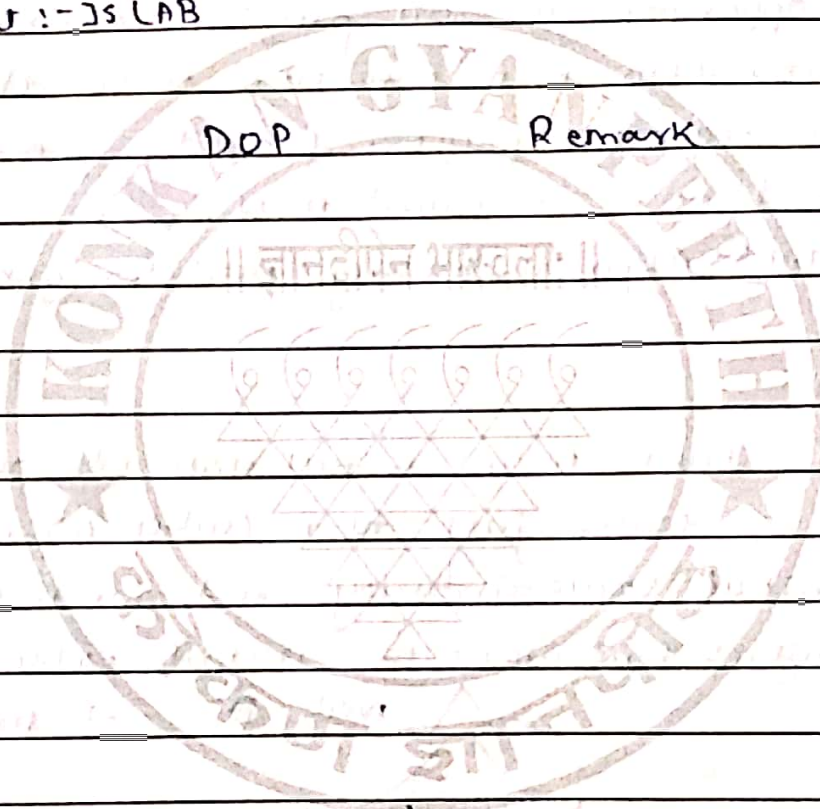 :- IS LAB
DOP Remark
KONKAN GYANPEETH
|| ज्ञानदीपेन भास्वता: ||
कोंकण ज्ञानपीठ